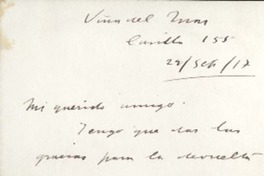 Viña del Mar
Casilla 155
29/Set/17
Mi querido amigo:
Tengo que das las
gracias para la